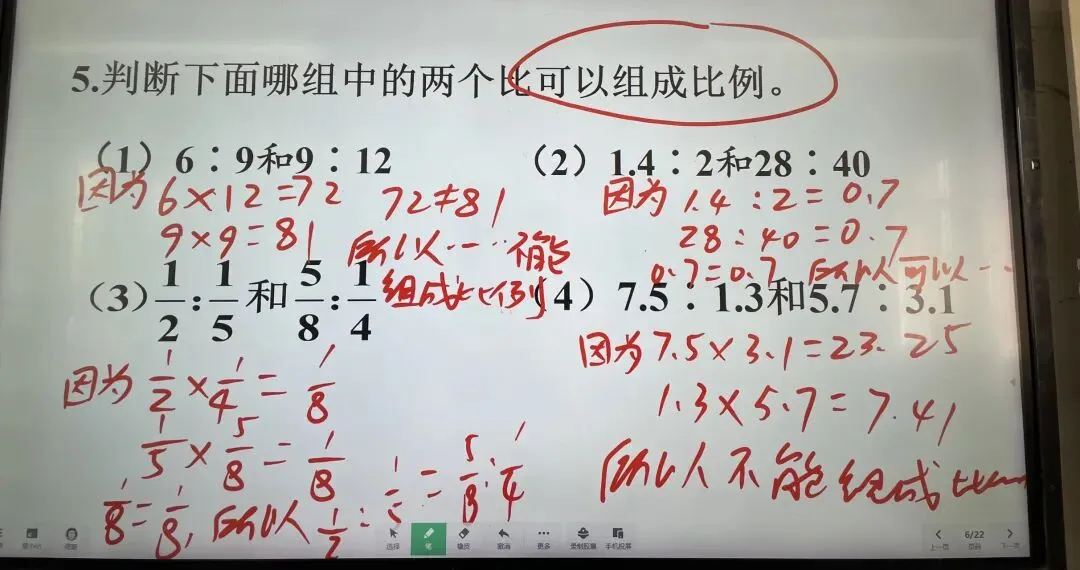 5.判断下面哪组中的两个比可以组成比例。
(1) 6∶9和9∶12
因为 6×12=72 72≠81
9×9=81 所以……不能
组成比例
(2) 1.4∶2和28∶40
因为 1.4:2=0.7
28:40=0.7
0.7=0.7 所以可以……
(3) 1/2:1/5和5/8:1/4
因为 1/2×1/4=1/8
1/5×5/8=1/8
1/8=1/8,所以1/2:1/5=5/8:1/4
(4) 7.5∶1.3和5.7∶3.1
因为 7.5×3.1=23.25
1.3×5.7=7.41
所以不能组成比
选择 笔 橡皮 撤消 更多 录制胶囊 手机投屏
上一页 6/22 下一页